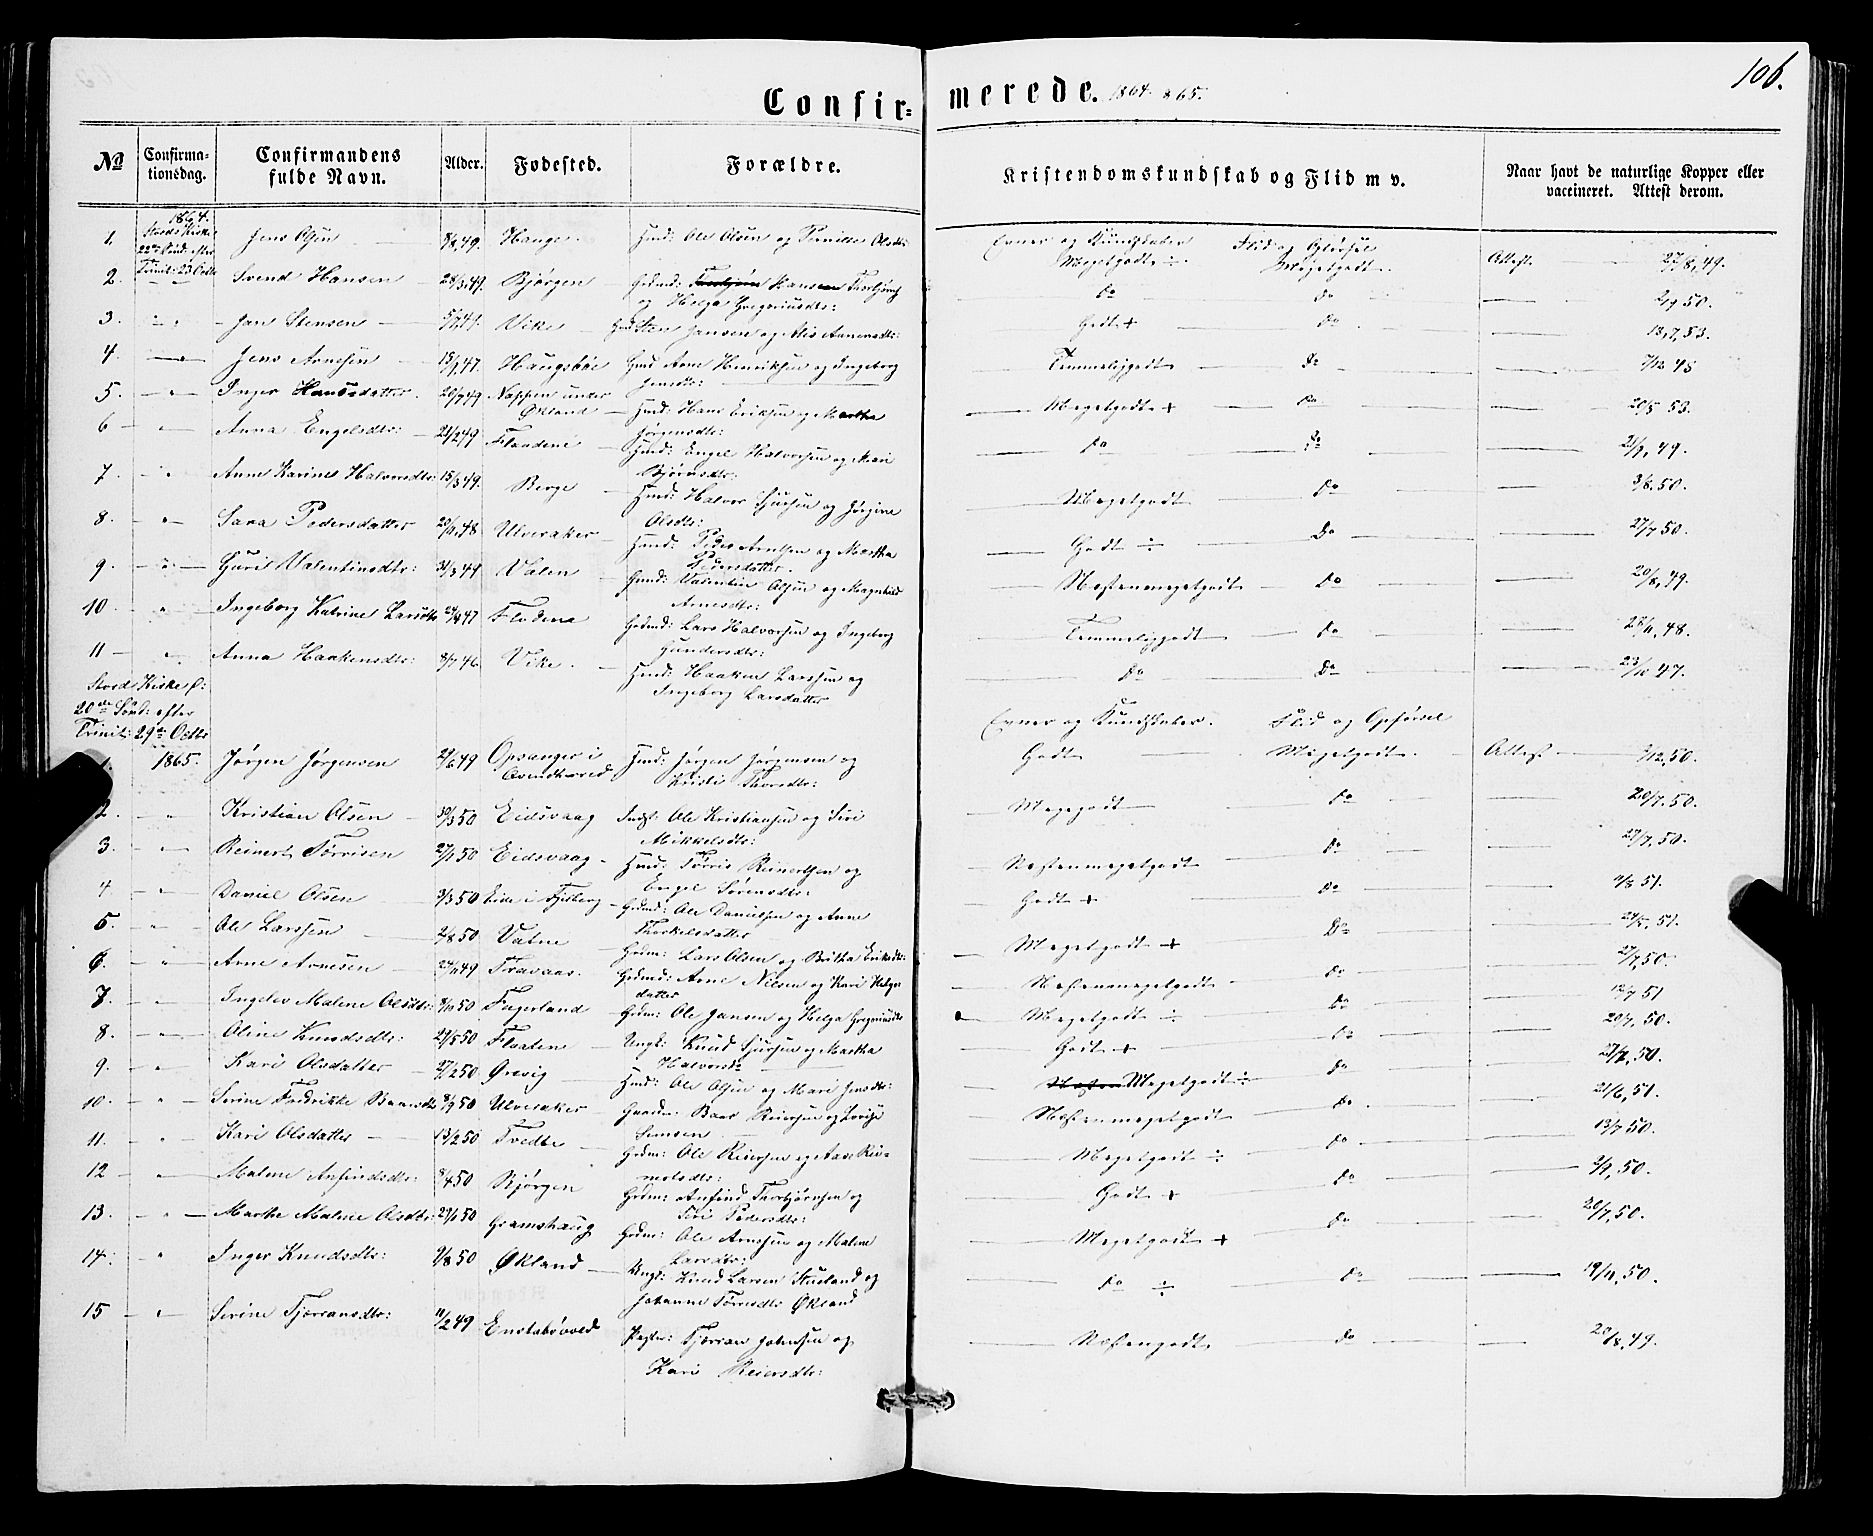 106.
Confirmerede. 1864. & 65.
No | Confirmationsdag. | Confirmandens fulde Navn. | Alder. | Fødested. | Forældre. | Kristendomskundskab og Flid m v. | Naar havt de naturlige Kopper eller vaccineret. Attest derom.
1864.
Evner og Kundskaber Flid og
1. Jens Olsen 49. Hauge. Hmd: Ole Olsen og Pernille Olsdtr: Megetgodt ÷. Megetgodt. Attest. 27/8, 49.
2. Svend Hansen 28/3 49. Bjørgen Hansen
og Helga Gregoriusdtr: do do 50.
3. Jan Stensen Vike Sten Jansen og Annansdtr: Godt + do 13/7, 53.
4. Jens Arnesen 15/ 47. Haugsbøe Hmd Arne Henriksen og Ingeborg
Jensdtr: Temmeliggodt do 7/12 48
5. Inger Hansdatter. 20/ 49 Nappen under
Økland Hmd: Hans Eriksen og Martha
Jørgensdtr: Megetgodt + do 20/5 53.
6 Anna Engelsdtr: 49 Flaadene Hmd: Engel Halvorsen og Mari
Bjørnsdtr: do do 21/9, 49.
7. Anne Karine Halvorsdtr: 15/3 49. Berge Hmd: Halvor Sjursen og Jørgine
Olsdtr: Megetgodt do 3/8. 50.
8. Sara Pedersdatter 20/11 48 Ulveraker Hmd: Peder Arnesen og Martha
Pedersdatter. Godt ÷ do 27/7 50.
9. Guri Valentinsdtr: 31/3 49 Valen Gmd: Valentin Olsen og Magnhild
Arnesdtr: Næstenmegetgodt do 20/8, 49.
10. Ingeborg Katrine Larsdtr 47 Flodene Lars Halvorsen og Ingeborg
Gundersdtr: Temmeliggodt do 28/11, 48.
11 Anna Haakensdtr: 8/7 46. Vike. Hmd: Haaken Larssen og
Ingeborg Larsdatter do do 23/10 47.
Stord Kirke
20de Sönd: efter
Trinit: 29de Octbr
Evner og Kundskaber. Flid og Opførsel
1. 1865. Jørgen Jørgensen 2/6 49 Opsanger i
Qvindherred Hmd: Jørgen Jørgensen og
Kristi Thorsdtr: Godt Megetgodt. Attest 2/12, 50.
2. Kristian Olsen 30/3 50 Eidsvaag Indst: Ole Kristiansen og Siri
Mikkelsdtr: do 20/7. 50.
3. Reinert Tørrisen 27/1 50 Eidsvaag Hmd: Tørris Reinertsen og
Engel Sørensdtr: Næstenmegetgodt do 27/7, 50.
4 Daniel Olsen 3/3 50 Eide i Fjelberg Gmd: Ole Danielsen og Anne
Thorkelsdatter Godt + do 51.
5. Ole Larssen 2/8 50 Vatne Lars Olsen og Britha Eriksdtr: Megetgodt + do 24/5, 51.
6. Arne Arnesen 24/11 49 Travaas. Arne Nilsen og Kari Helge
datter Næstenmegetgodt do 27/7, 50.
7. Ingelev Malene Olsdtr: 8/10 50 Fagerland Ole Jansen og Helga Gregoriusdtr Megetgodt ÷ do 12/7 51
8. Oline Knudsdtr: 21/5 50 Flaaten Ungk: Knud Sjursen og Martha
Halvorsdtr Godt + do 20/7, 50.
9. Kari Olsdatter 27/2 50 Ørevig Hmd: Ole Olsen og Mari Jensdtr: Næsten Megetgodt ÷ do 50.
10. Serine Fredrikke Baarsdtr 8/9 50 Ulveraker Baar Reiersen og Lovise
Simsen Næstenmegetgodt do 21/6, 51.
11. Kari Olsdatter 13/2 50 Tvedte Ole Reiersen og Aase Rei-
melsdtr: Megetgodt ÷ do 13/7 50.
12 Malene Anfindsdtr: 8/4 50 Bjørgen Anfind Thorbjørnsen og
Siri Pedersdtr: Godt + do 50.
13. Marthe Malene Olsdtr: 23/1 50 Gramshaug Ole Arnesen og Malene
Larsdtr: Megetgodt + do 20/7, 50.
14. Inger Knudsdtr: 9/8 50 Økland Ungk: Knud Larsen Hueland og
Johanne Tørresdtr Økland do ÷ do 19/11, 50.
15 Serine Tjærransdtr: 11/2 49 Enstabøvold Tjærran Johansen og
Kari Reiersdtr: Næstengodt do 20/8, 49.